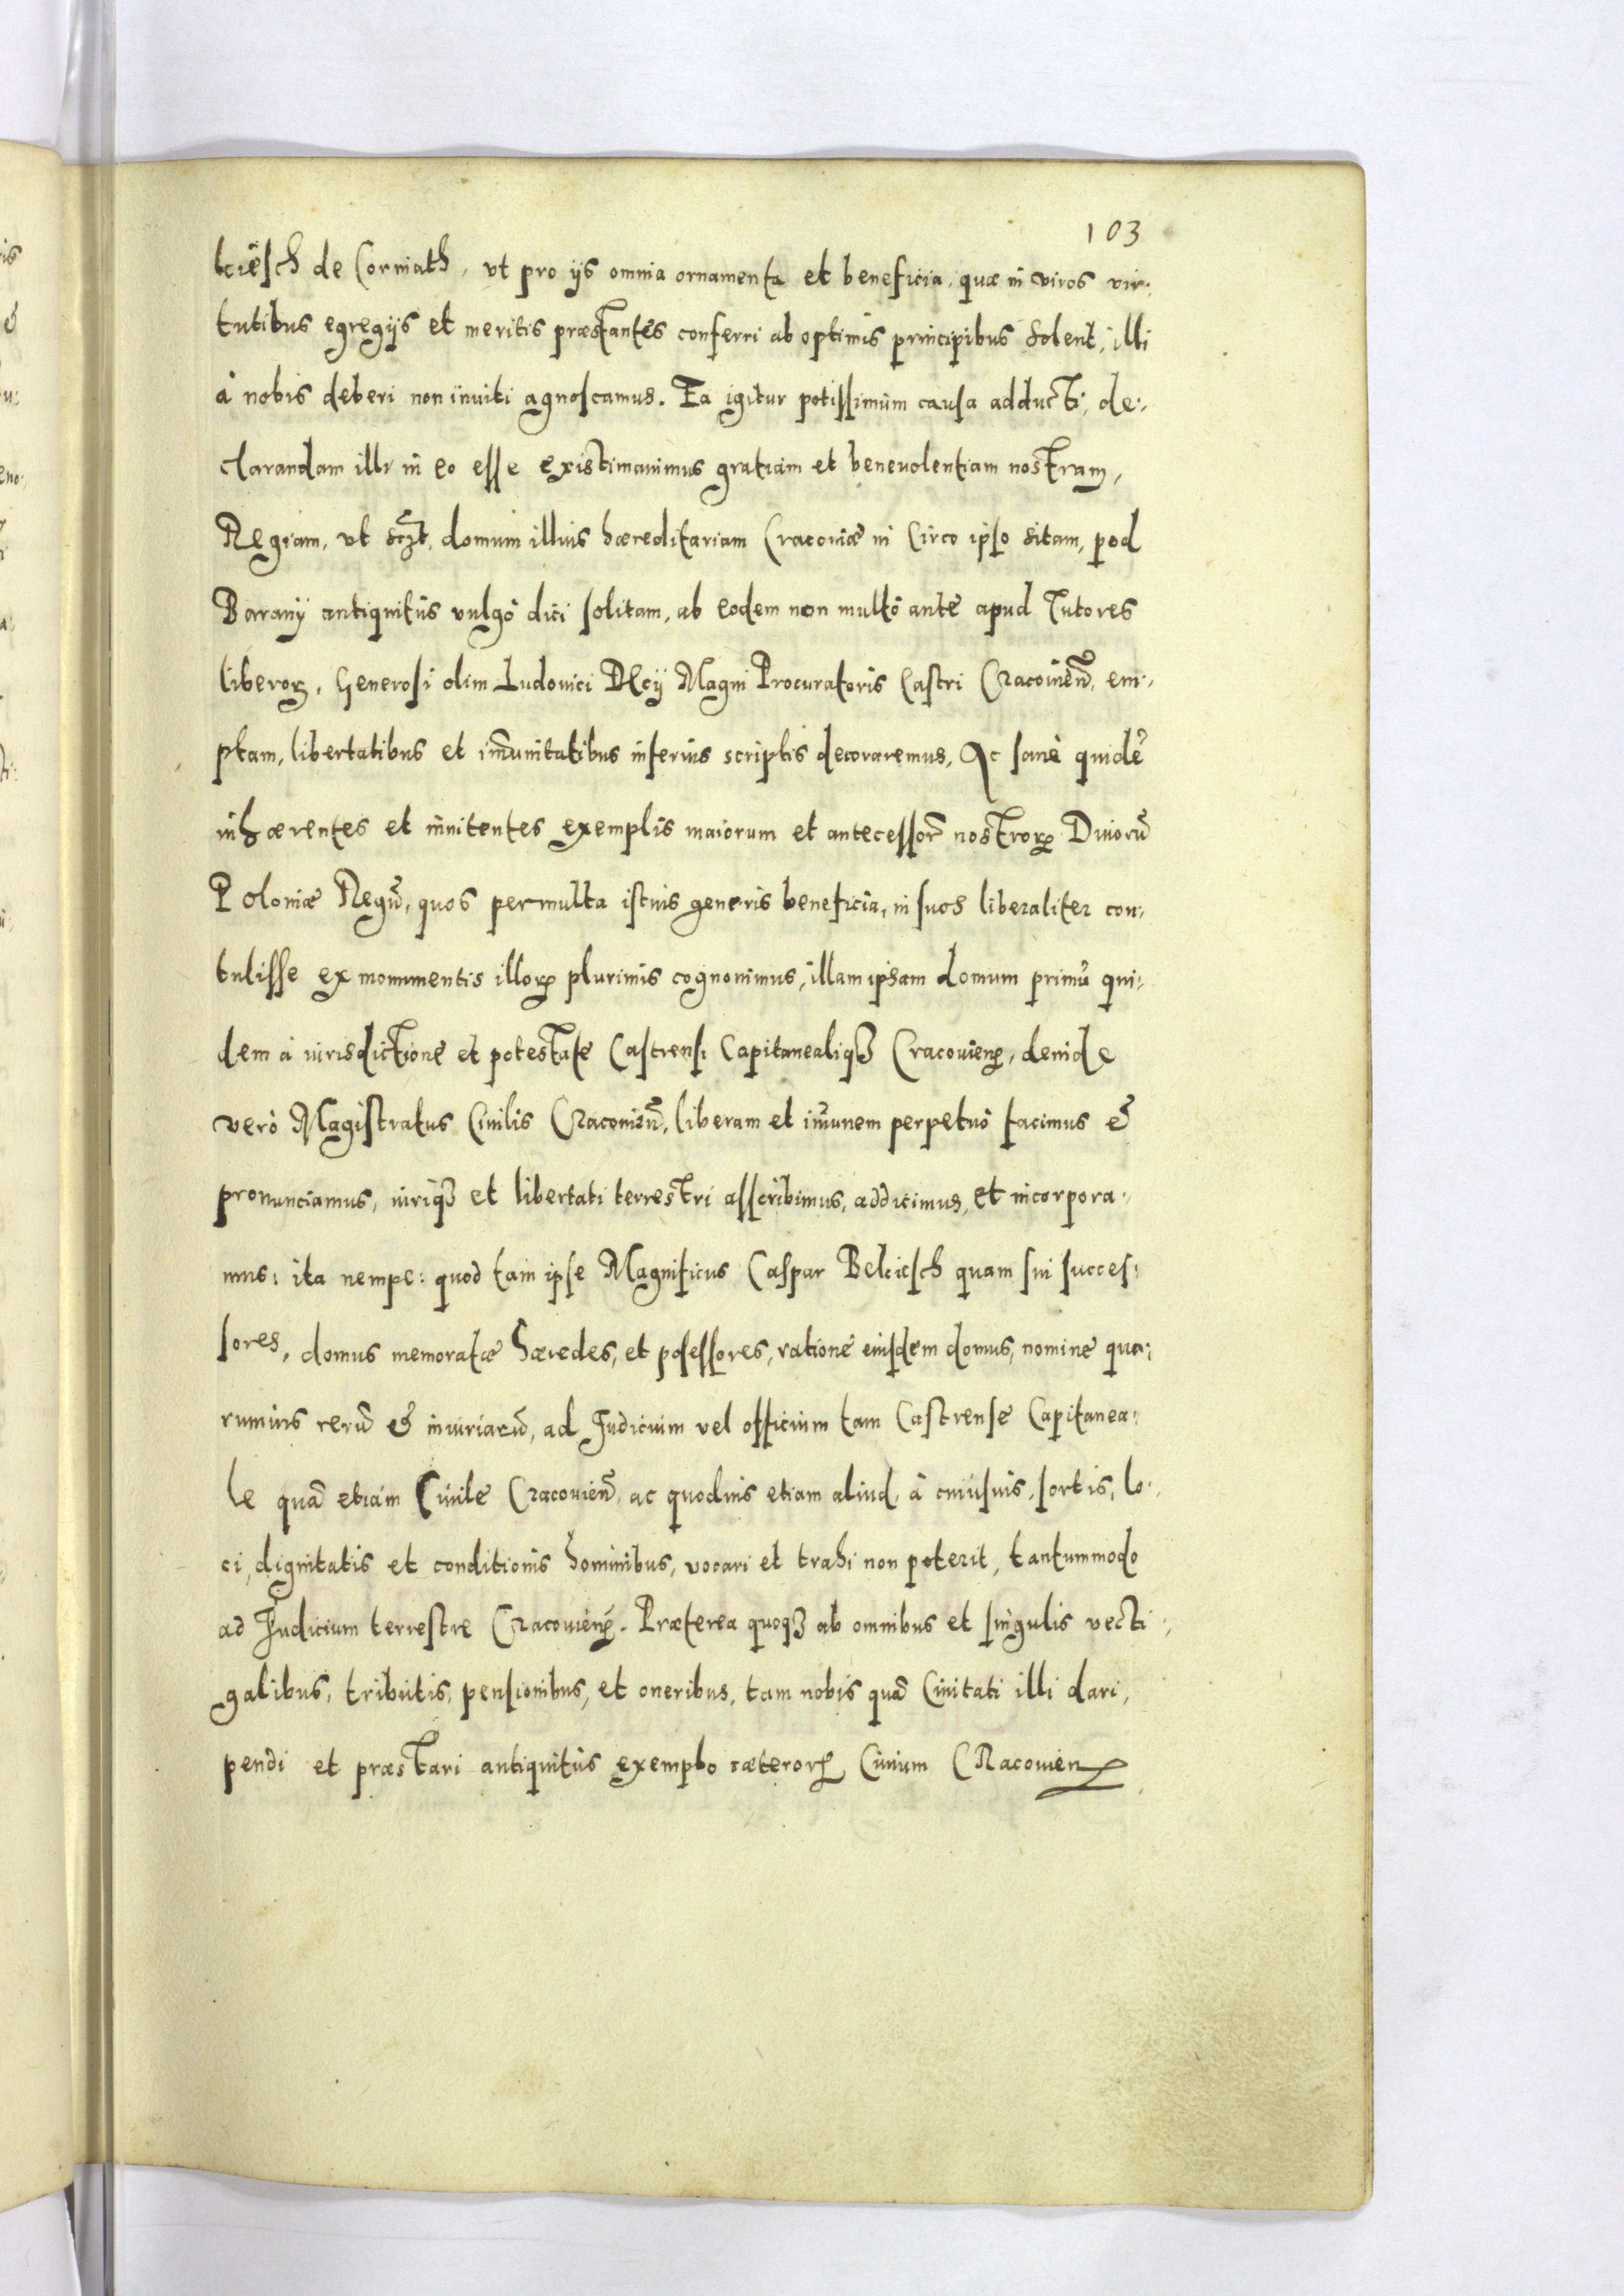 103
lciesch de Corniath, vt pro ijs omnia ornamenta et beneficia, quæ in viros vir:
tutibus egregijs et meritis præstantes conferri ab optimis principibus solent, illi
à nobis deberi non inuiti agnoscamus. Ea igitur potissimum causa adducti, de:
clarandam illi in eo esse existimauimus gratiam et beneuolentiam nostram,
Regiam, vt sczt, domum illius hæreditariam Cracouiæ in Circo ipso sitam, pod
Barany antiquitùs vulgò dici solitam, ab eodem non multò ante apud Tutores
liberoꝝ, Generosi olim Ludouici Decij Magni Procuratoris Castri Cracouien̄, em:
ptam, libertatibus et im̄unitatibus inferius scriptis decoraremus, Ac sanè quidē
inhærentes et innitentes exemplis maiorum et antecessor̄ nostroꝝ Diuorū
Poloniæ Regū, quos permulta istius generis beneficia, in suos liberaliter con:
tulisse ex monumentis illoꝝ plurimis cognouimus, illam ipsam domum primū qui:
dem à iurisdictione et potestate Castrensi Capitanealiqꝫ Cracouienꝭ, deinde
verò Magistratus Ciuilis Cracouien̄, liberam et im̄unem perpetuò facimus &
pronunciamus, iuriqꝫ et libertati terrestri asscribimus, addicimus, et incorpora:
mus: ita nempe: quod tam ipse Magnificus Caspar Belciesch quam sui succes:
sores, domus memoratæ hæredes, et posessores, ratione eiusdem domus, nomine qua:
rumuis rerū & iniuriarū, ad Iudicium vel officium tam Castrense Capitanea:
le quā etiam Ciuile Cracouien̄, ac quoduis etiam aliud, à cuiusuis, sortis, lo:
ci, dignitatis et conditionis hominibus, vocari et trahi non poterit, tantummodo
ad Iudicium terrestre Cracouienꝭ. Præterea quoqꝫ ab omnibus et singulis vecti:
galibus, tributis, pensionibus, et oneribus, tam nobis quā Ciuitati illi dari,
pendi et præstari antiquitùs exemplo cæteroꝝ Ciuium Cracouienꝭ